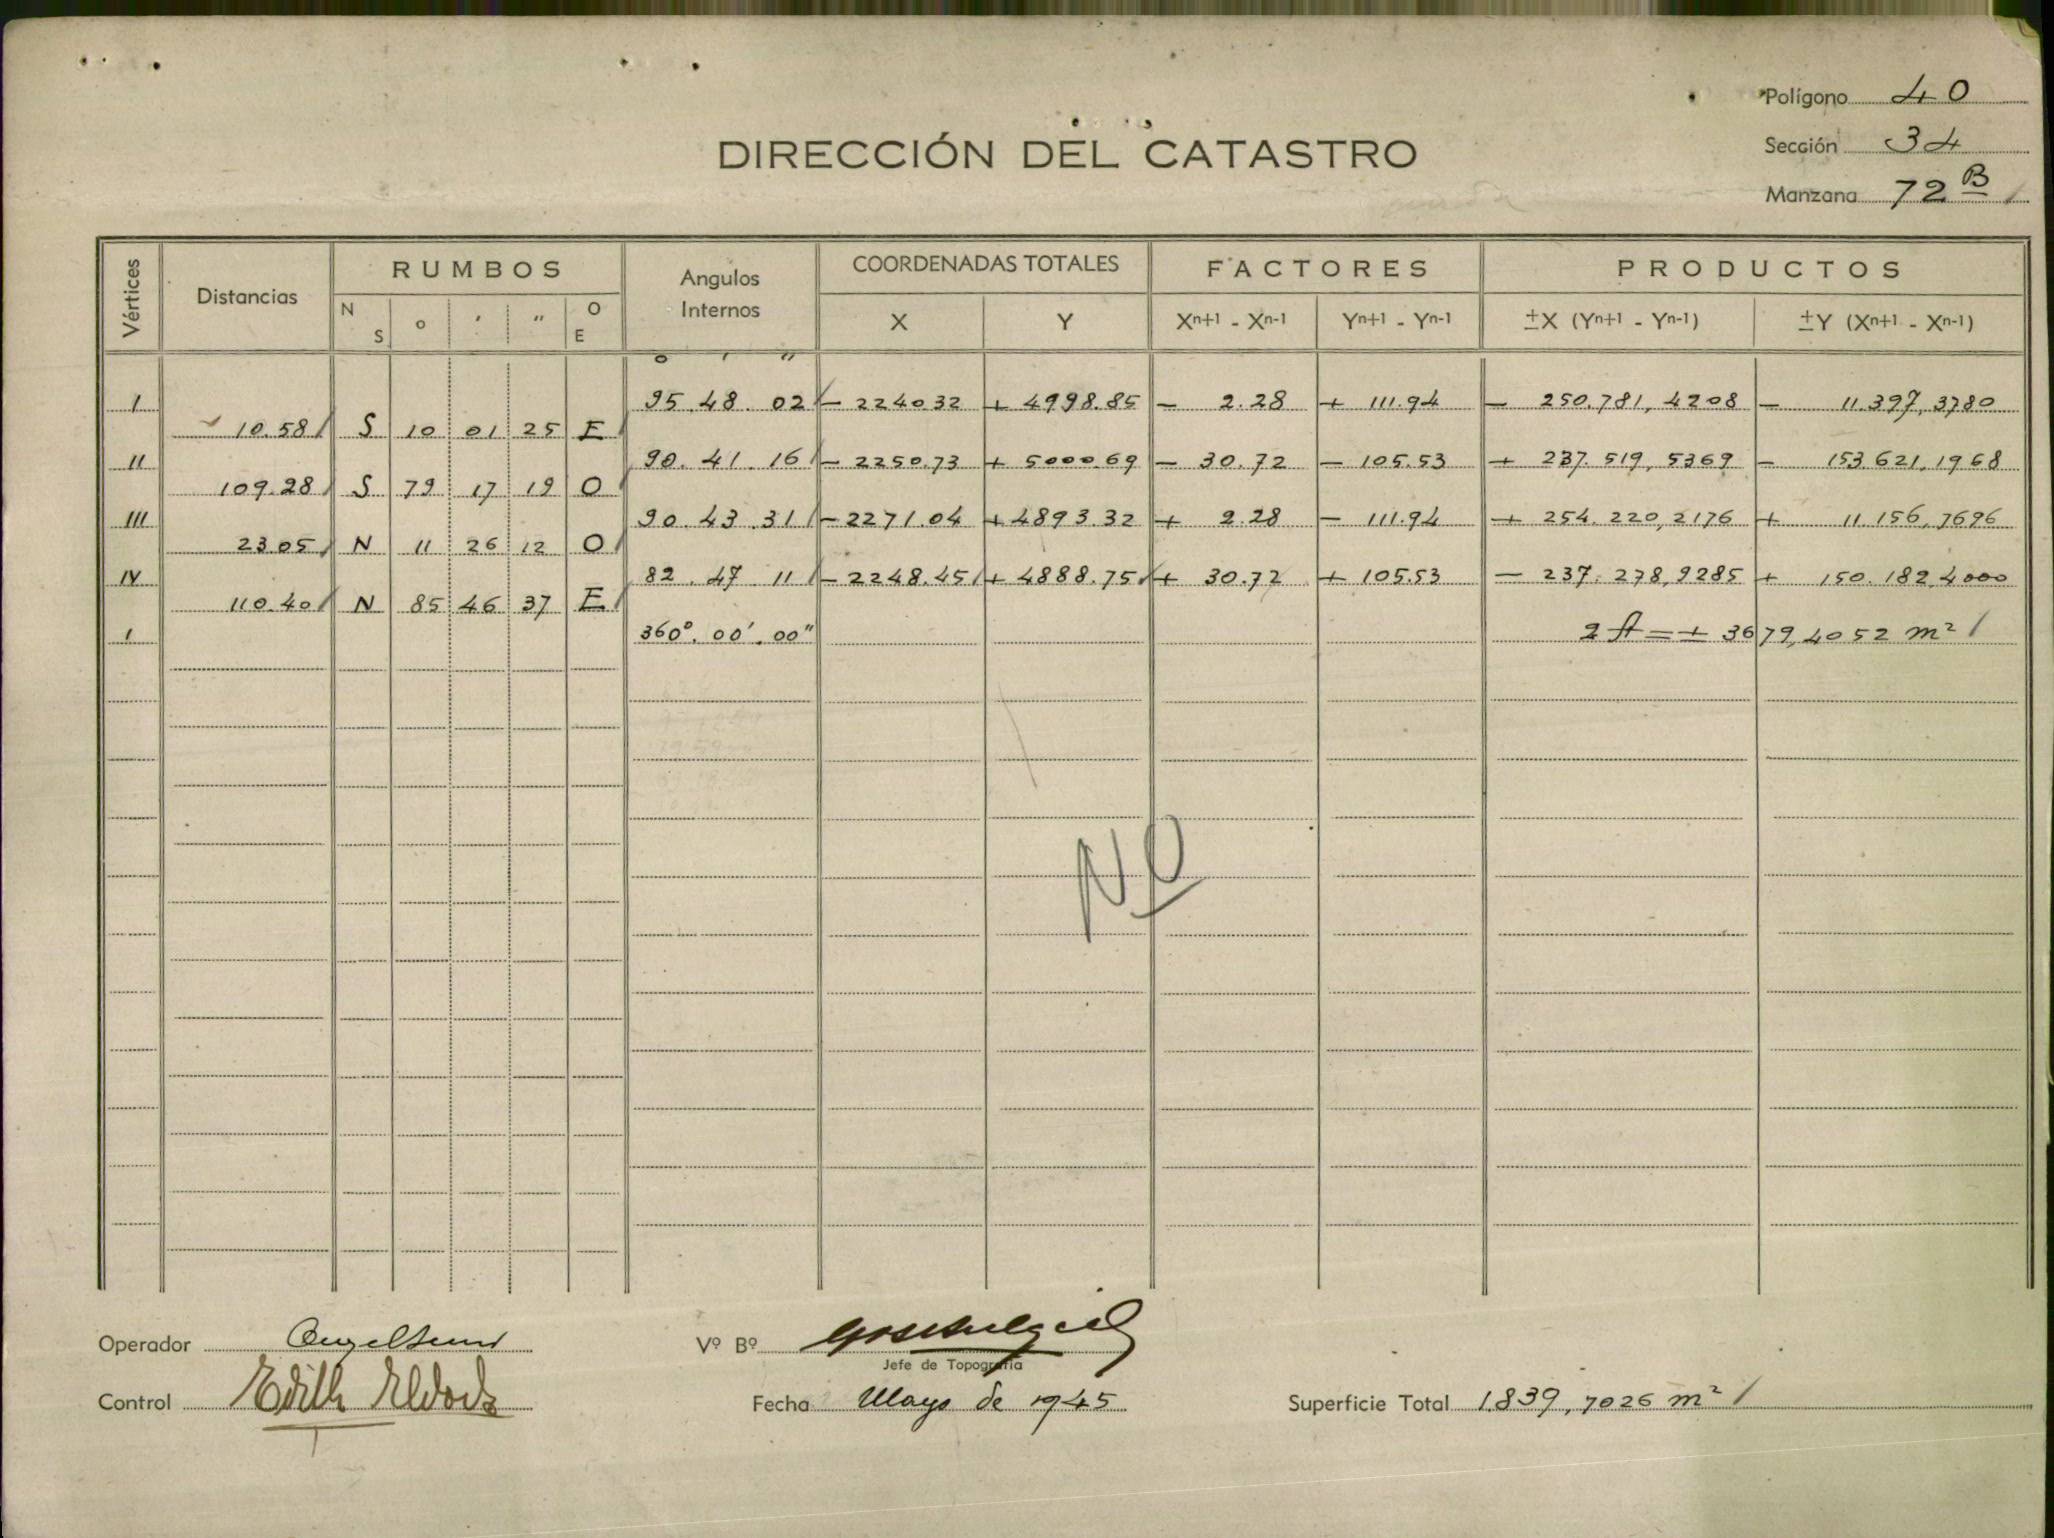 Polígono 40
DIRECCIÓN DEL CATASTRO
Sección 34
Manzana 72 B
Vértices Distancias RUMBOS Angulos Internos COORDENADAS TOTALES FACTORES PRODUCTOS
N S o ' " O E X Y Xn+1 - Xn-1 Yn+1 - Yn-1 ±X (Yn+1 - Yn-1) ±Y (Xn+1 - Xn-1)
o ' "
I 95.48.02 - 2240.32 + 4998.85 - 2.28 + 111.94 - 250.781,4208 - 11.397,3780
10.58 S 10 01 25 E
II 90.41.16 - 2250.73 + 5000.69 - 30.72 - 105.53 + 237.519,5369 - 153.621,1968
109.28 S 79 17 19 O
III 90.43.31 - 2271.04 + 4893.32 + 2.28 - 111.94 + 254.220,2176 + 11.156,7696
23.05 N 11 26 12 O
IV 82.47 11 - 2248.45 + 4888.75 + 30.72 + 105.53 - 237.278,9285 + 150.182,4000
110.40 N 85 46 37 E
I 360°.00'.00" 2A = + 3679,4052 m²
NO
Operador
Vº Bº
Jefe de Topografía
Control Edith
Fecha Mayo de 1945
Superficie Total 1.839,7026 m²